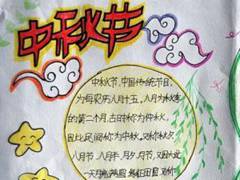 中秋节
中秋节,中国传统节日,
为每年农历八月十五,八月为秋季
的第二个月,古时称为仲秋,
因此民间称为中秋,又称秋夕
八月节,八月半,月夕,月节,又因为这
一天月亮满圆,象征团圆,又称